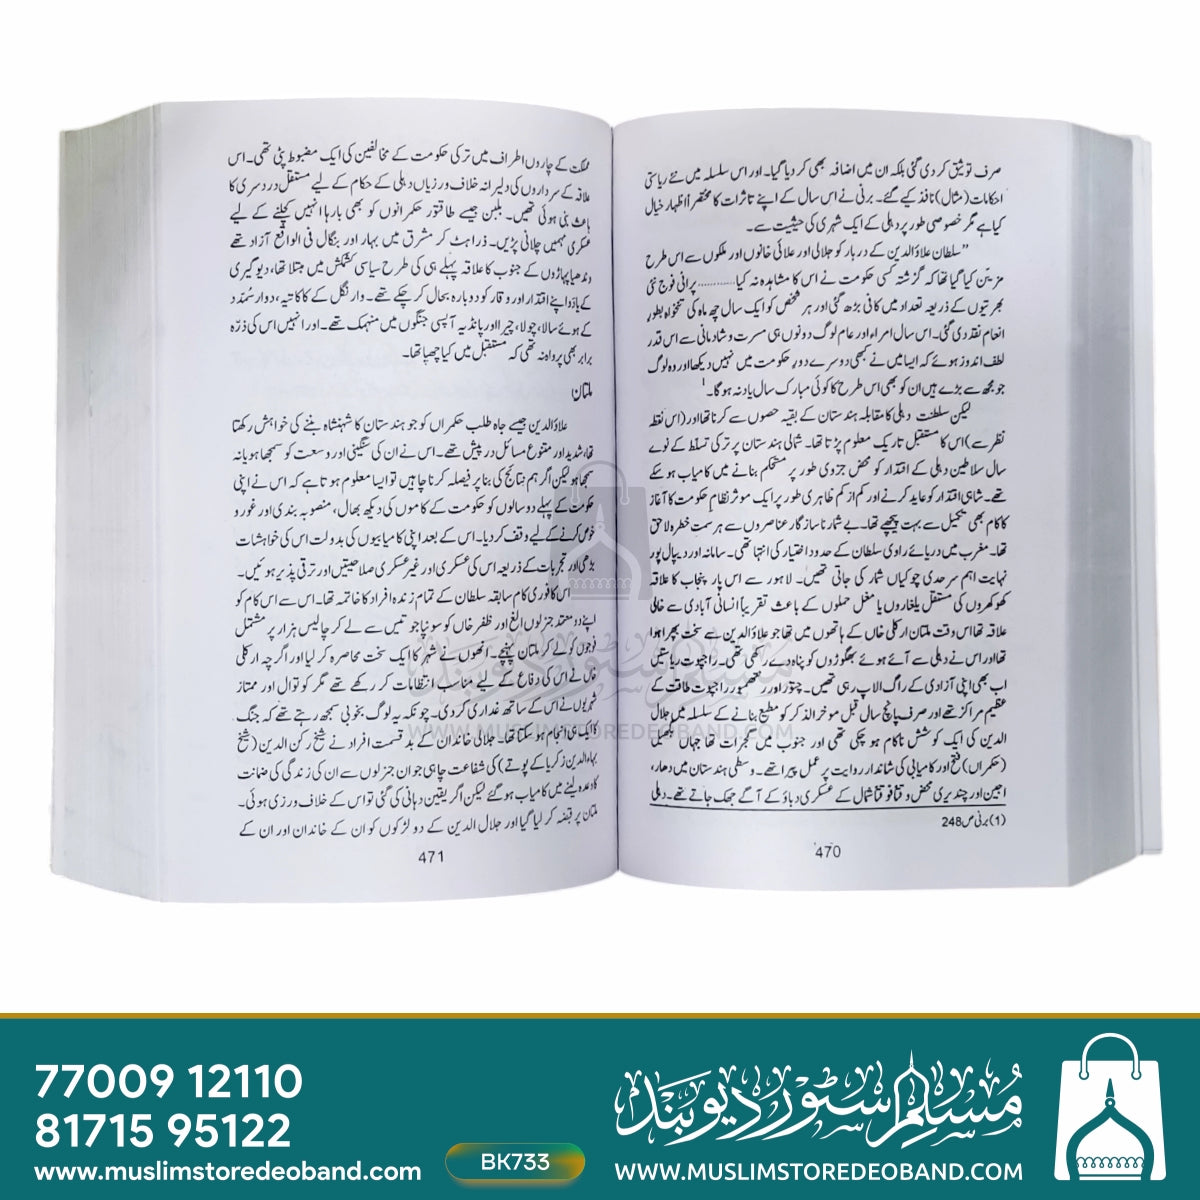 صرف توثیق کر دی گئی بلکہ ان میں اضافہ بھی کر دیا گیا۔ اور اس سلسلہ میں نئے ریاستی
احکامات (مثال) نافذ کیے گئے۔ برنی نے اس سال کے اپنے تاثرات کا مختصر اً اظہار خیال
کیا ہے مگر خصوصی طور پر دہلی کے ایک شہری کی حیثیت سے۔
”سلطان علاؤ الدین کے دربار کو جلالی اور علائی خانوں اور ملکوں سے اس طرح
مزیّن کیا گیا تھا کہ گزشتہ کسی حکومت نے اس کا مشاہدہ نہ کیا........... پرانی فوج نئی
بھرتیوں کے ذریعہ تعداد میں کافی بڑھ گئی اور ہر شخص کو ایک سال چھ ماہ کی تنخواہ بطور
انعام نقد دی گئی۔ اس سال امراء اور عام لوگ دونوں ہی مسرت و شادمانی سے اس قدر
لطف اندوز ہوئے کہ ایسا میں نے کبھی دوسرے دورِ حکومت میں نہیں دیکھا اور وہ لوگ
جو مجھ سے بڑے ہیں ان کو بھی اس طرح کا کوئی مبارک سال یاد نہ ہو گا۔۱
لیکن سلطنت دہلی کا مقابلہ ہندستان کے بقیہ حصوں سے کرنا تھا اور (اس نقطہ
نظر سے) اس کا مستقبل تاریک معلوم پڑتا تھا۔ شمالی ہندستان پر ترکی تسلط کے نوے
سال سلاطین دہلی کے اقتدار کو محض جزوی طور پر مستحکم بنانے میں کامیاب ہو سکے
تھے۔ شاہی اقتدار کو عاید کرنے اور کم از کم ظاہری طور پر ایک موثر نظام حکومت کا آغاز
کا کام بھی تکمیل سے بہت پیچھے تھا۔ بے شمار ناساز گار عناصروں سے ہر سمت خطرہ لاحق
تھا۔ مغرب میں دریائے راوی سلطان کے حدود اختیار کی انتہا تھی۔ سامانہ اور دیپال پور
نہایت اہم سرحدی چوکیاں شمار کی جاتی تھیں۔ لاہور سے اس پار پنجاب کا علاقہ
کھوکھروں کی مستقل یلغاروں یا مغل حملوں کے باعث تقریباً انسانی آبادی سے خالی
علاقہ تھا اس وقت ملتان ارکلی خاں کے ہاتھوں میں تھا جو علاؤالدین سے سخت پھرا ہوا
تھا اور اس نے دہلی سے آئے ہوئے بھگوڑوں کو پناہ دے رکھی تھی۔ راجپوت ریاستیں
اب بھی اپنی آزادی کے راگ الاپ رہی تھیں۔ چتوڑ اور رنتھمبور راجپوت طاقت کے
عظیم مراکز تھے اور صرف پانچ سال قبل موخر الذکر کو مطیع بنانے کے سلسلہ میں جلال
الدین کی ایک کوشش ناکام ہو چکی تھی اور جنوب میں گجرات تھا جہاں بگھیل
(حکمراں) فتح اور کامیابی کی شاندار روایت پر عمل پیرا تھے۔ وسطی ہندستان میں دھار،
اجین اور چندیری محض وقتاً فوقتاً شمال کے عسکری دباؤ کے آگے جھک جاتے تھے۔ دہلی
(1) برنی ص 248
470
مملکت کے چاروں اطراف میں ترکی حکومت کے مخالفین کی ایک مضبوط پٹی تھی۔ اس
علاقہ کے سرداروں کی دلیرانہ خلاف ورزیاں دہلی کے حکام کے لیے مستقل درد سری کا
باعث بنی ہوئی تھیں۔ بلبن جیسے طاقتور حکمرانوں کو بھی بارہا انہیں کچلنے کے لیے
عسکری مہمیں چلانی پڑیں۔ ذرا ہٹ کر مشرق میں بہار اور بنگال فی الواقع آزاد تھے
وندھیا پہاڑوں کے جنوب کا علاقہ پہلے ہی کی طرح سیاسی کشمکش میں مبتلا تھا، دیوگیری
کے یادو اپنے اقتدار اور وقار کو دوبارہ بحال کر چکے تھے۔ وارنگل کے کاکاتیہ، دوار سمُند
کے ہوئے سالا، چولا، چیرا اور پانڈیہ آپسی جنگوں میں منہمک تھے۔ اور انہیں اس کی ذرّہ
برابر بھی پرواہ نہ تھی کہ مستقبل میں کیا چھپا تھا۔
ملتان
علاؤالدین جیسے جاہ طلب حکمراں کو جو ہندستان کا شہنشاہ بننے کی خواہش رکھتا
تھا، شدید اور متنوع مسائل درپیش تھے۔ اس نے ان کی سنگینی اور وسعت کو سمجھا ہو یا نہ
سمجھا ہو لیکن اگر ہم نتائج کی بنا پر فیصلہ کرنا چاہیں تو ایسا معلوم ہوتا ہے کہ اس نے اپنی
حکومت کے پہلے دو سالوں کو حکومت کے کاموں کی دیکھ بھال، منصوبہ بندی اور غور و
خوض کرنے کے لیے وقف کر دیا۔ اس کے بعد اپنی کامیابیوں کی بدولت اس کی خواہشات
بڑھی اور تجربات کے ذریعہ اس کی عسکری اور غیر عسکری صلاحیتیں اور ترقی پذیر ہوئیں۔
اس کا فوری کام سابقہ سلطان کے تمام زندہ افراد کا خاتمہ تھا۔ اس سے اس کام کو
اپنے دو معتمد جنرلوں الغ اور ظفر خاں کو سونپا جو تیس سے لے کر چالیس ہزار پر مشتمل
فوجوں کو لے کر ملتان پہنچے۔ انھوں نے شہر کا ایک سخت محاصرہ کر لیا اور اگرچہ ارکلی
خاں نے اس کی دفاع کے لیے مناسب انتظامات کر رکھے تھے مگر کوتوال اور ممتاز
شہریوں نے اس کے ساتھ غداری کر دی۔ چونکہ یہ لوگ بخوبی سمجھ رہے تھے کہ جنگ
کا ایک ہی انجام ہو سکتا تھا۔ جلالی خاندان کے بد قسمت افراد نے شیخ رکن الدین (شیخ
بہاءالدین زکریا کے پوتے) کی شفاعت چاہی جو ان جنرلوں سے ان کی زندگی کی ضمانت
کا وعدہ لینے میں کامیاب ہو گئے لیکن اگر یقین دہانی کی گئی تو اس کے خلاف ورزی ہوئی۔
ملتان پر قبضہ کر لیا گیا اور جلال الدین کے دو لڑکوں کو ان کے خاندان اور ان کے
471
مسلم سٹور دیوبند
WWW.MUSLIMSTOREDEOBAND.COM
77009 12110
81715 95122
www.muslimstoredeoband.com
BK733
مسلم سٹور دیوبند
WWW.MUSLIMSTOREDEOBAND.COM